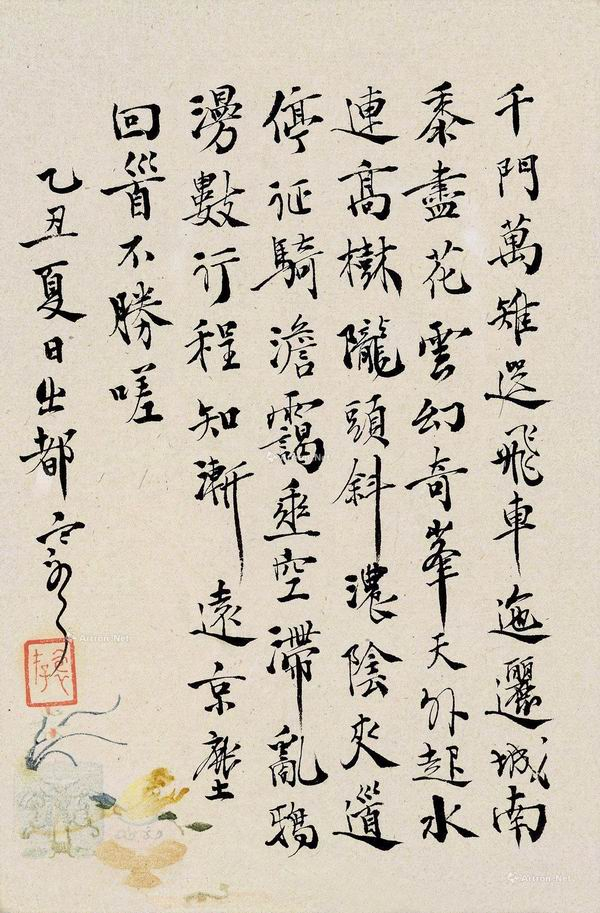 千門萬雉送飛車迤邐城南
黍盡花雲幻奇峯天外起水
連高樹隴頭斜濃陰夾道
停征騎澹靄垂空滯亂鴉
漫數行程知漸遠京塵
回首不勝嗟
乙丑夏日出都
Artron.Net
Artron.Net
Artron.Net